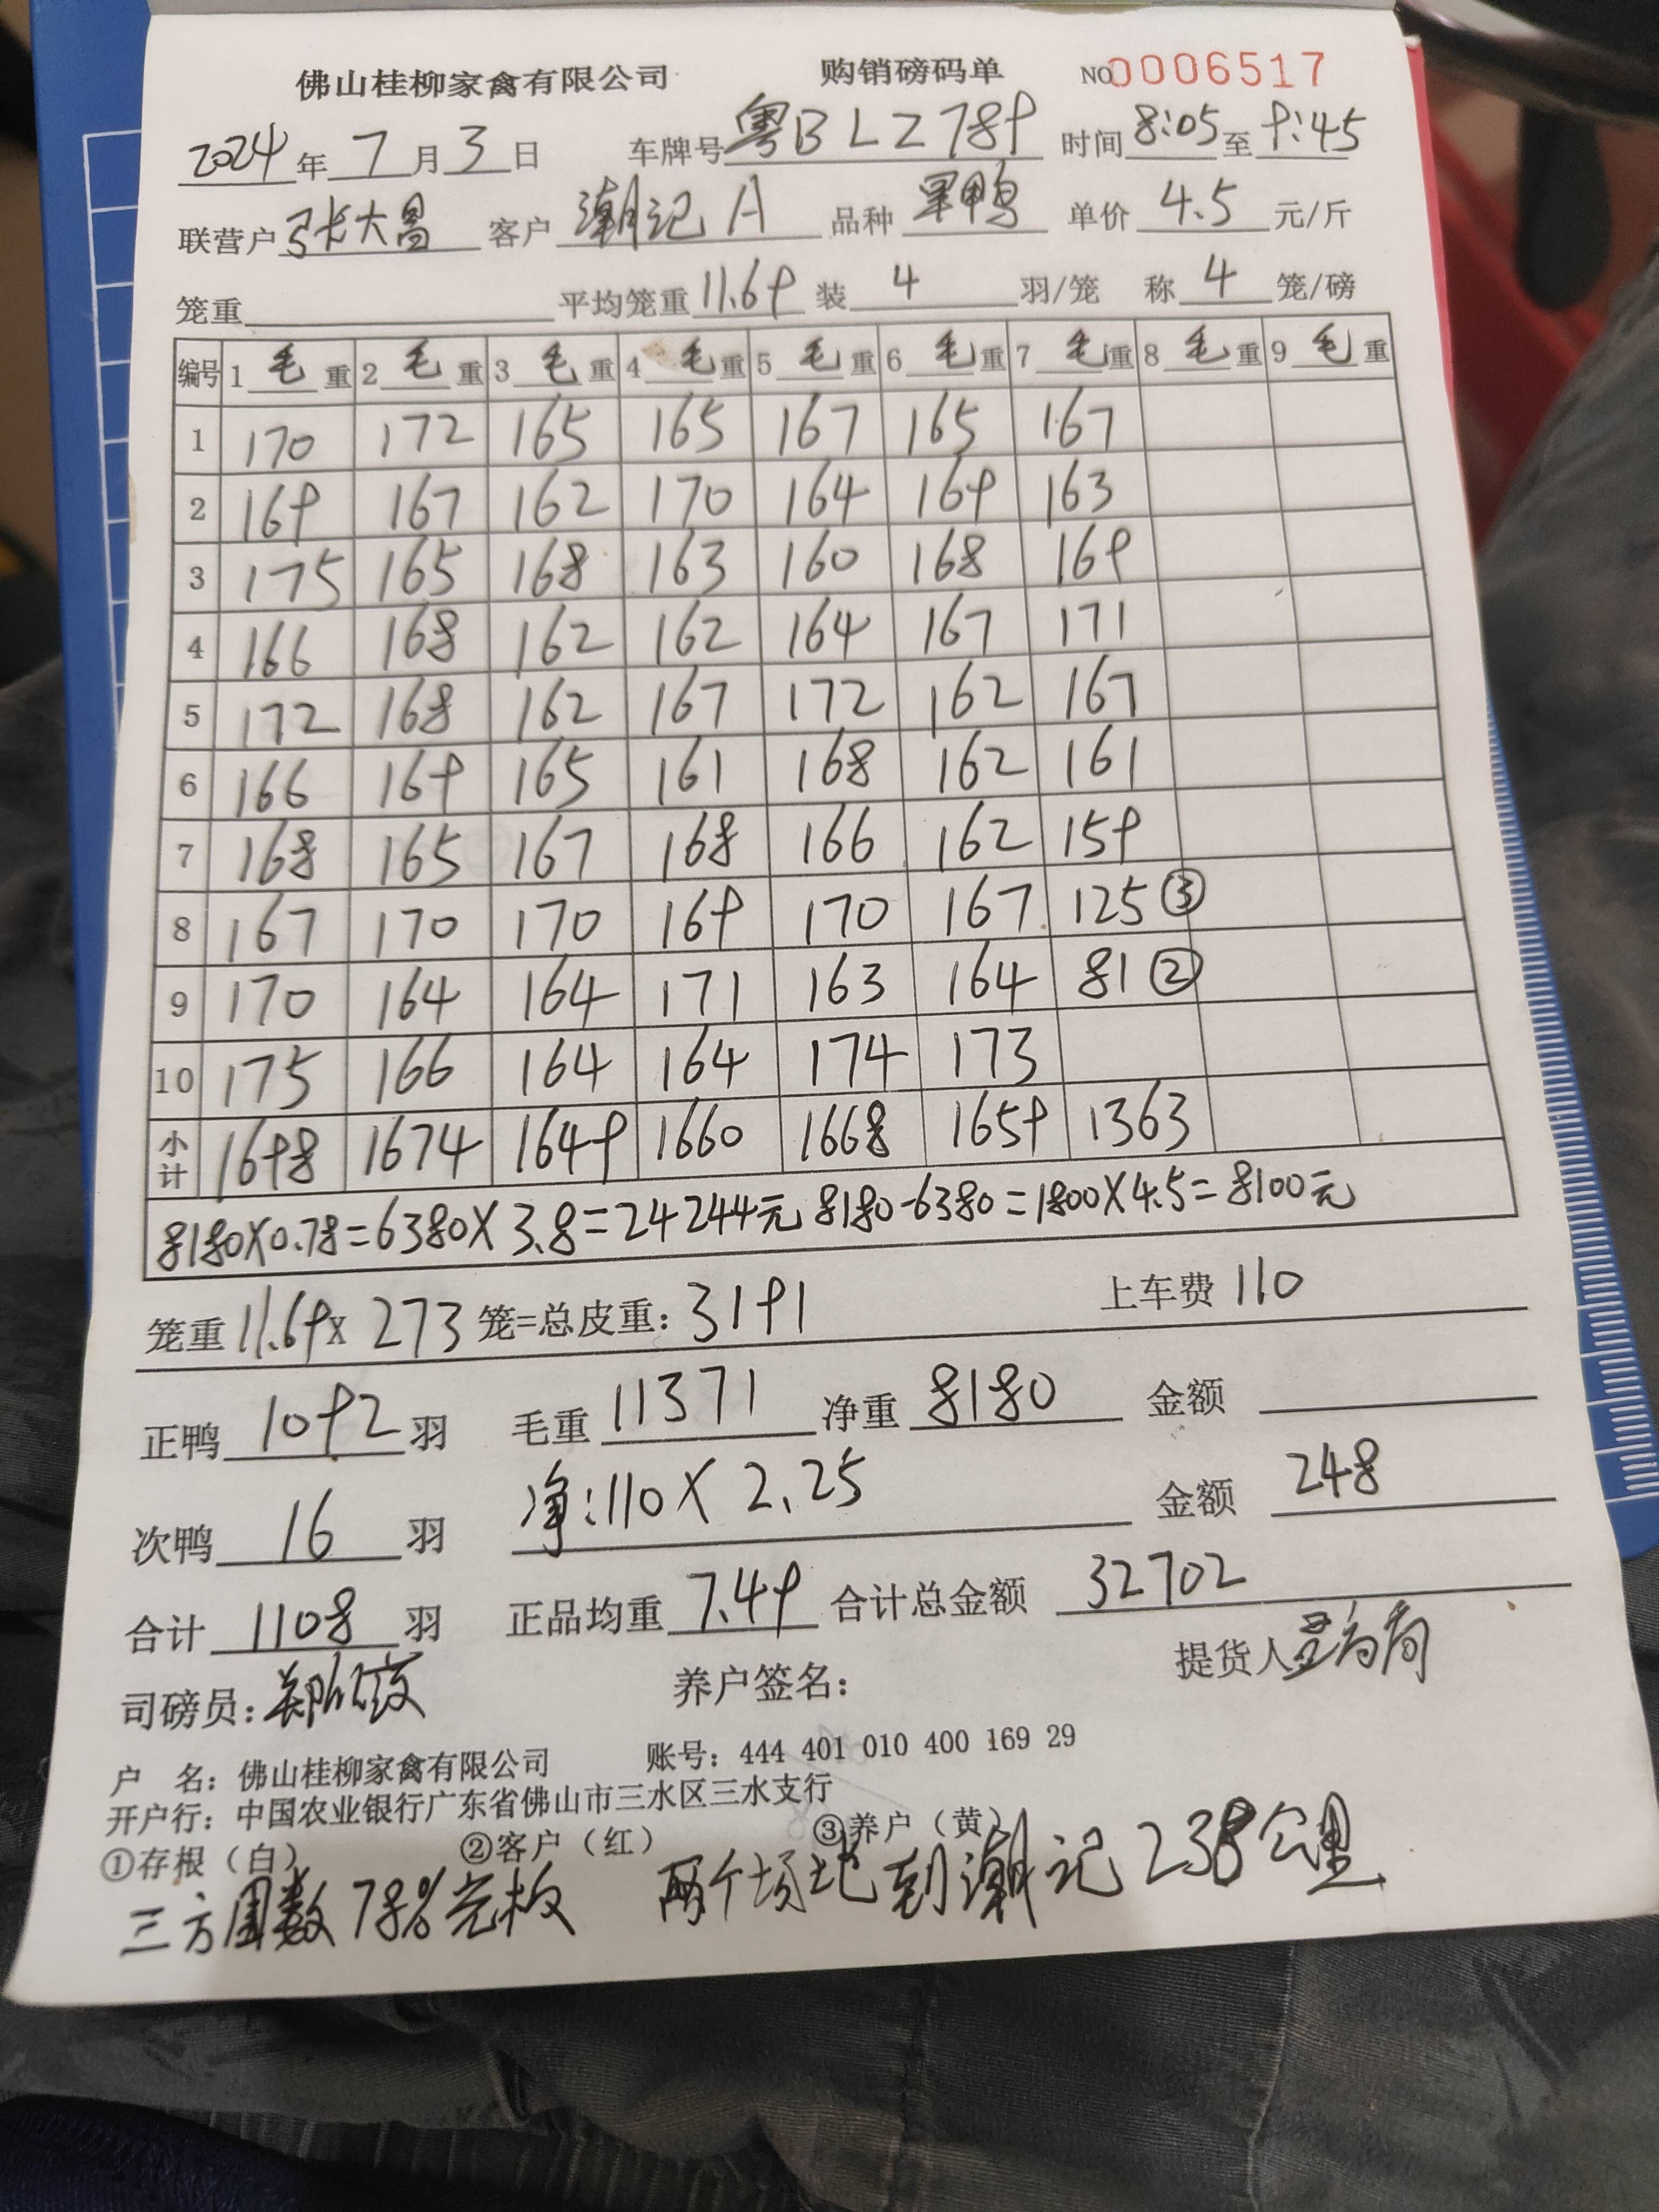 佛山桂柳家禽有限公司 购销磅码单 NO 0006517
2024 年 7 月 3 日 车牌号 粤BLZ789 时间 8:05 至 9:45
联营户 张大昌 客户 潮记A 品种 黑鸭 单价 4.5 元/斤
笼重 平均笼重 11.69 装 4 羽/笼 称 4 笼/磅
编号 1 毛 重 2 毛 重 3 毛 重 4 毛 重 5 毛 重 6 毛 重 7 毛 重 8 毛 重 9 毛 重
1 170 172 165 165 167 165 167
2 169 167 162 170 164 169 163
3 175 165 168 163 160 168 169
4 166 168 162 162 164 167 171
5 172 168 162 167 172 162 167
6 166 169 165 161 168 162 161
7 168 165 167 168 166 162 159
8 167 170 170 169 170 167 125 ③
9 170 164 164 171 163 164 81 ②
10 175 166 164 164 174 173
小计 1698 1674 1649 1660 1668 1659 1363
8180×0.78=6380×3.8=24244元 8180-6380=1800×4.5=8100元
笼重 11.69 × 273 笼=总皮重: 3191 上车费 110
正鸭 1092 羽 毛重 11371 净重 8180 金额
次鸭 16 羽 净:110×2.25 金额 248
合计 1108 羽 正品均重 7.49 合计总金额 32702
司磅员: 养户签名: 提货人
户 名: 佛山桂柳家禽有限公司 账号: 444 401 010 400 169 29
开户行: 中国农业银行广东省佛山市三水区三水支行
①存根（白） ②客户（红） ③养户（黄）
三方围数78%光板 两个场地到潮记238公里